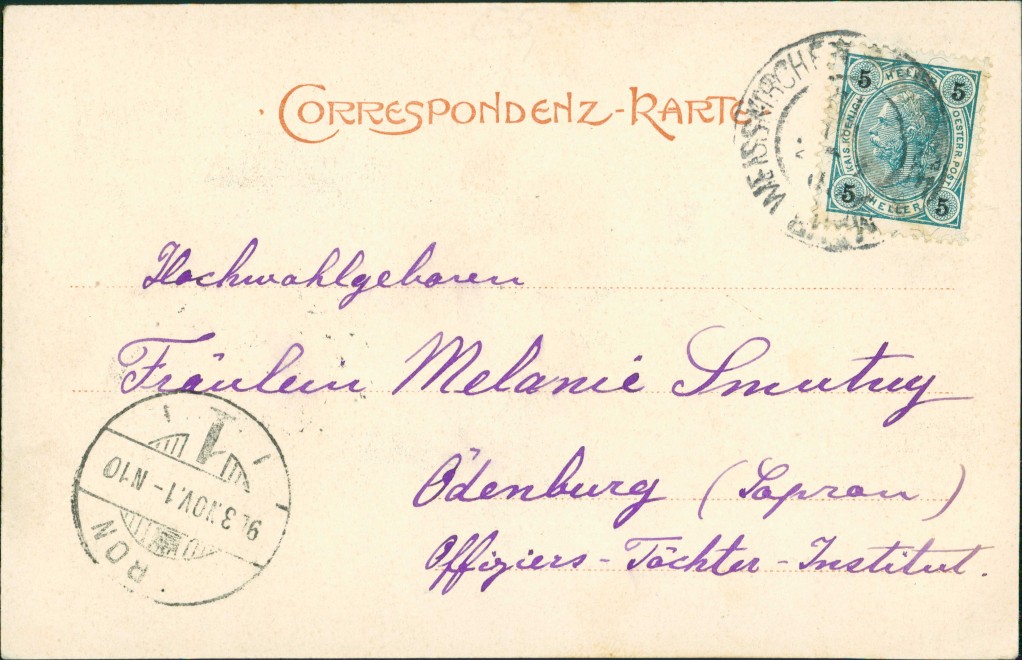 CORRESPONDENZ-KARTE
5 HELLER 5
KAIS. KOENIGL. OESTERR. POST.
5 HELLER 5
WEISSKIRCHEN
Hochwohlgeboren
Fräulein Melanie Smutny
Ödenburg (Sopron)
Offiziers-Töchter-Institut.
1
NOV. 1 - N10
RON